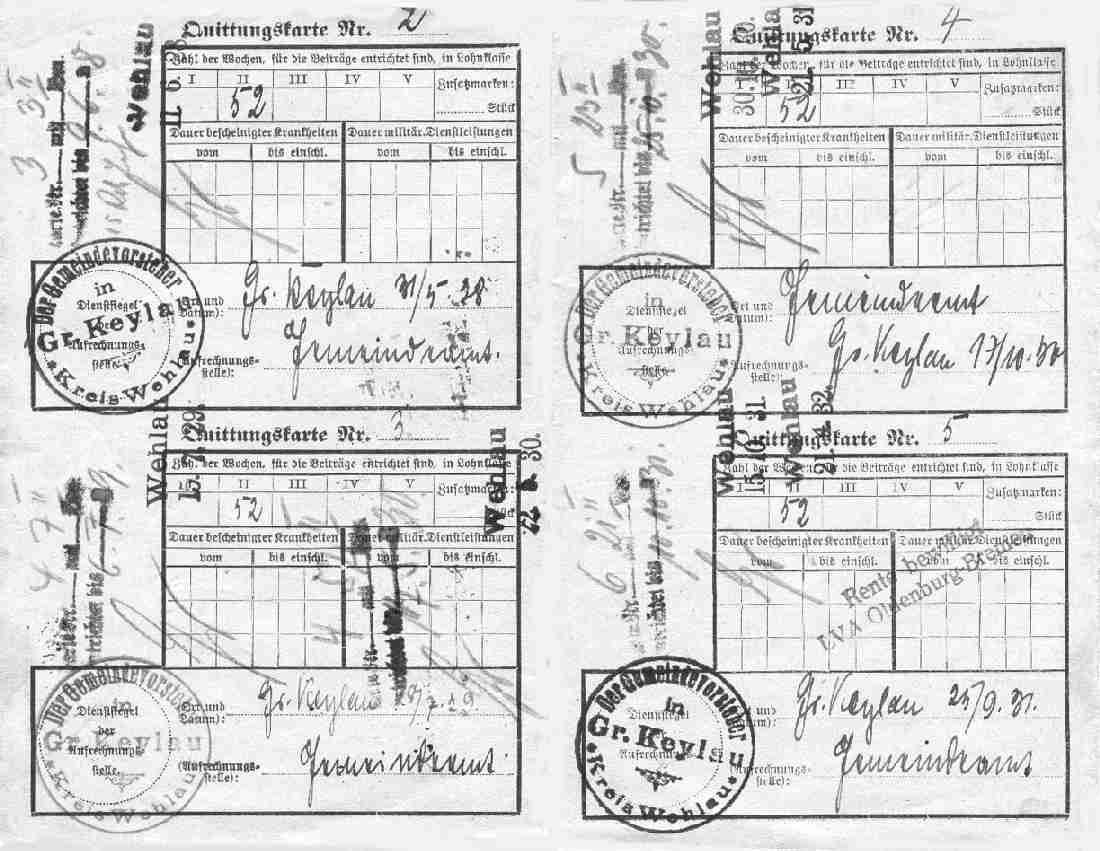 Quittungskarte Nr. 2
Zahl der Wochen, für die Beiträge entrichtet sind, in Lohnklasse
I II III IV V Zusatzmarken:
52 Stück
Dauer bescheinigter Krankheiten Dauer militär. Dienstleistungen
vom bis einschl. vom bis einschl.
Wehlau
Der Gemeindevorsteher
in
Gr. Keylau
Kreis Wehlau
Dienstsiegel
der
Aufrechnungs-
stelle.
Ort und
Datum): Gr. Keylau 31/5. 28
(Aufrechnungs-
stelle): Gemeindeamt.
Quittungskarte Nr. 3
Zahl der Wochen, für die Beiträge entrichtet sind, in Lohnklasse
I II III IV V Zusatzmarken:
52 Stück
Dauer bescheinigter Krankheiten Dauer militär. Dienstleistungen
vom bis einschl. vom bis einschl.
Wehlau
15. 7. 29.
Wehlau
30.
Der Gemeindevorsteher
in
Gr. Keylau
Kreis Wehlau
Dienstsiegel
der
Aufrechnungs-
stelle.
Ort und
Datum): Gr. Keylau
(Aufrechnungs-
stelle): Gemeindeamt
Quittungskarte Nr. 4
Zahl der Wochen, für die Beiträge entrichtet sind, in Lohnklasse
I II III IV V Zusatzmarken:
52 Stück
Dauer bescheinigter Krankheiten Dauer militär. Dienstleistungen
vom bis einschl. vom bis einschl.
Wehlau
30. 10.
Wehlau
21. 5. 31
Der Gemeindevorsteher
in
Gr. Keylau
Kreis Wehlau
Dienstsiegel
der
Aufrechnungs-
stelle.
Ort und
Datum): Gemeindeamt
Gr. Keylau 17/10. 30
(Aufrechnungs-
stelle):
Quittungskarte Nr. 5
Zahl der Wochen, für die Beiträge entrichtet sind, in Lohnklasse
I II III IV V Zusatzmarken:
52 Stück
Dauer bescheinigter Krankheiten Dauer militär. Dienstleistungen
vom bis einschl. vom bis einschl.
Wehlau
15. 10. 31.
Wehlau
21. 4. 32.
Rente bewilligt
LVA Oldenburg-Bremen
Der Gemeindevorsteher
in
Gr. Keylau
Kreis Wehlau
Dienstsiegel
der
Aufrechnungs-
stelle.
Ort und
Datum): Gr. Keylau 25/9. 31.
(Aufrechnungs-
stelle): Gemeindeamt